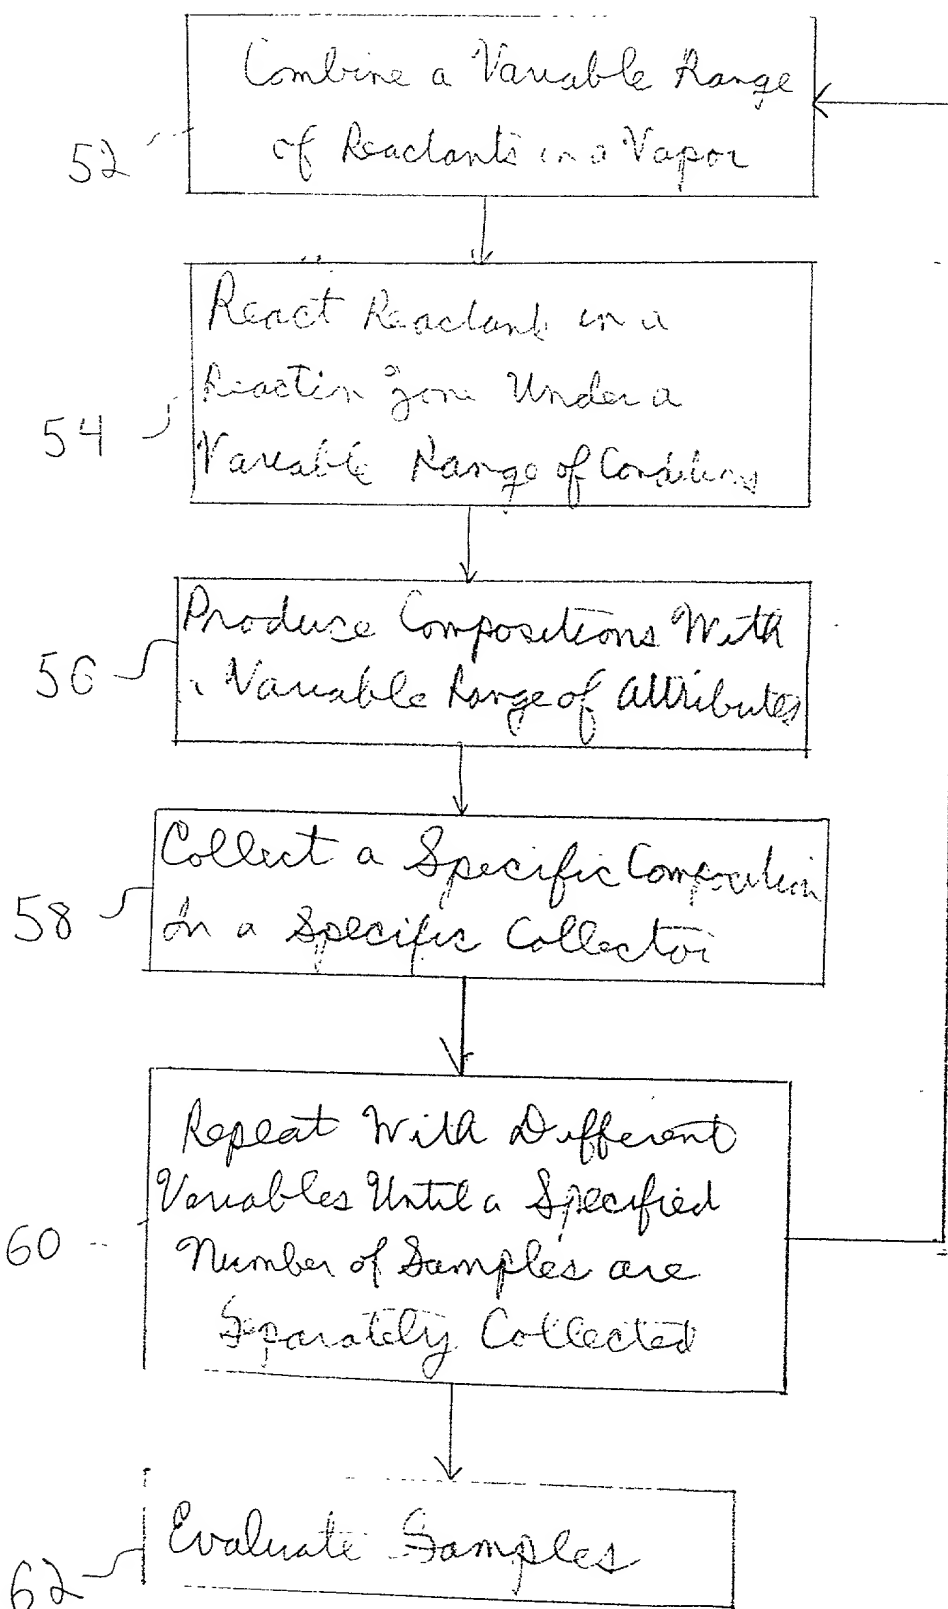 Combine a Variable Range
52
of Reactants in a Vapor
React Reactant in a
Reaction Zone Under a
54
Variable Range of Conditions
Produce Compositions With
56
a Variable Range of Attributes
Collect a Specific Composition
58
In a Specific Collector
Repeat With Different
Variables Until a Specified
60
Number of Samples are
Separately Collected
Evaluate Samples
62